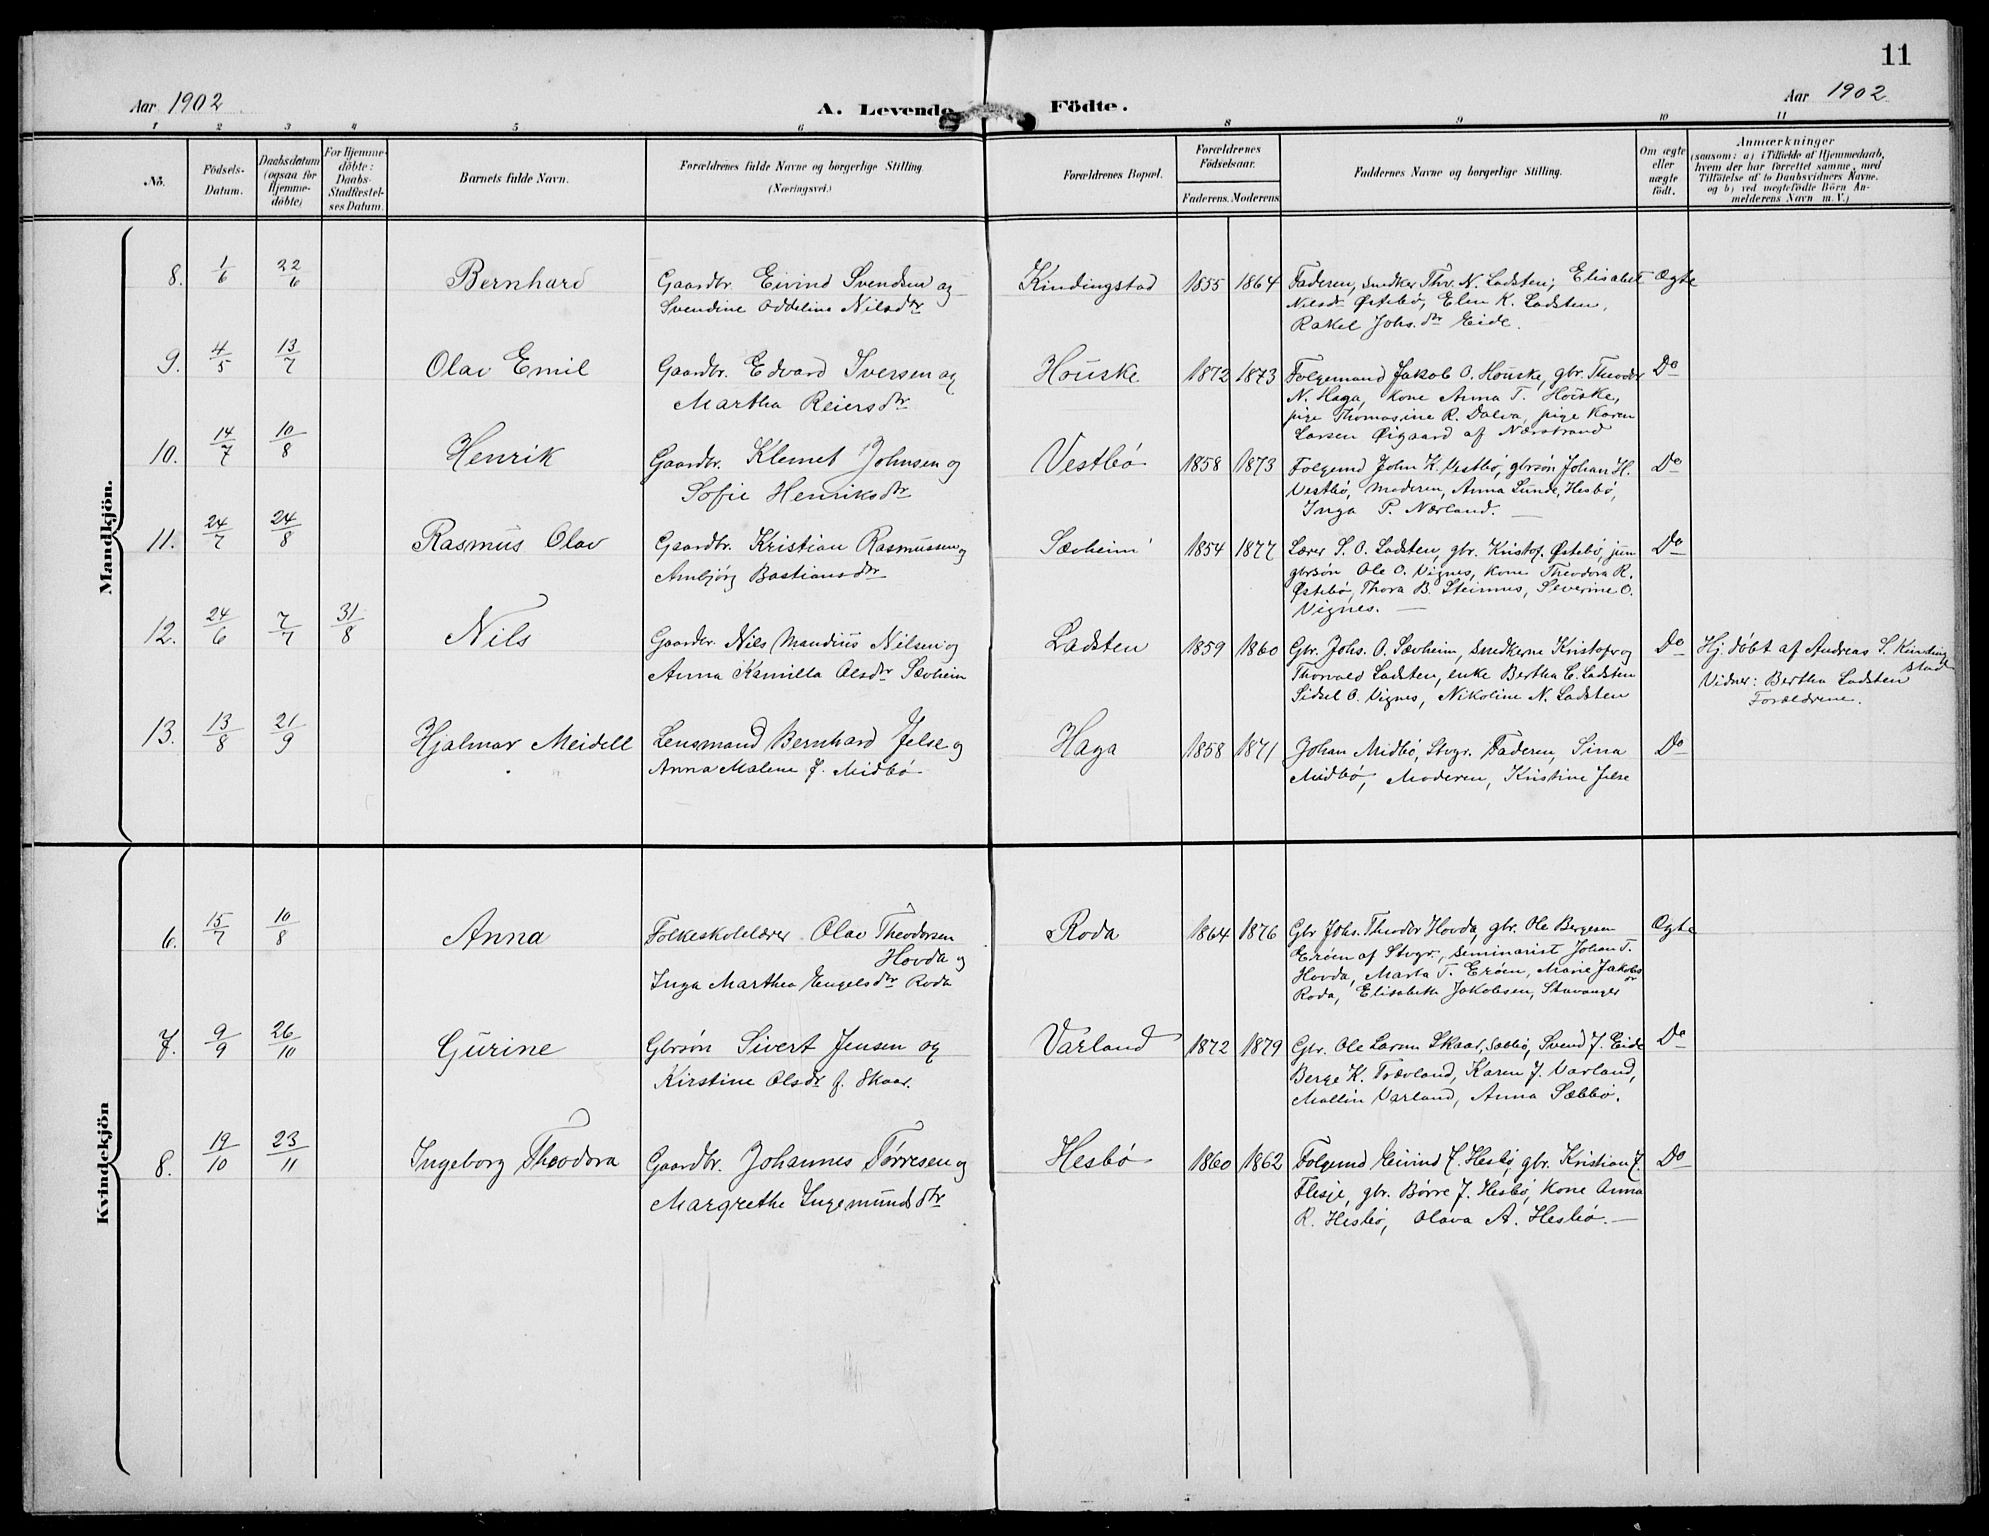 11
Aar 1902 A. Levende Födte. Aar 1902
1 2 3 4 5 6 8 9 10 11
No. Födsels-Datum. Daabsdatum (ogsaa for Hjemme-döbte) For Hjemme-döbte: Daabs-Stadfæstel-ses Datum. Barnets fulde Navn. Forældrenes fulde Navne og borgerlige Stilling (Næringsvei.) Forældrenes Bopæl. Forældrenes Födselsaar. Faderens. Moderens. Faddernes Navne og borgerlige Stilling. Om ægte eller uægte födt. Anmærkninger (saasom: a) i Tilfælde af Hjemmedaab, hvem der har forrettet samme, med Tilföielse af to Daabsvidners Navne. og b) ved uegtefödte Börn An-melderens Navn m. V.)
Mandkjön.
8. 1/6 22/6 Bernhard Gaardbr. Eivind Svendsen og Kindingstad 1855 1864 Faderen, snedker Thv. N. Ladsten, Elisabet Ægte
Svendine Oddeline Nilsdtr Nilsdr Østebø, Elen K. Ladsten,
Rakel Johs.dtr Eide.
9. 4/5 13/7 Olav Emil Gaardbr. Edvard Iversen og Houske 1872 1873 Folgemand Jakob O. Houske, gbr. Theodor Do
Martha Reiersdtr N. Haga, kone Anna T. Houske,
pige Thomasine R. Dalva, pige Karen
Larsen Øigaard af Nærstrand
10. 14/7 10/8 Henrik Gaardbr. Klemet Johnsen og Vestbø 1858 1873 Folgemd John K. Vestbø, gbrsøn Johan H. Do
Sofie Henriksdtr Vestbø, Moderen, Anna Lunde, Hesbø,
Inga P. Nærland.
11. 24/7 24/8 Rasmus Olav Gaardbr. Kristian Rasmussen og Sævheim 1854 1877 Lærer S. O. Ladsten, gbr. Kristof. Østebø, jun Do
Anbjörg Bastiansdtr gbrsøn Ole O. Vignes, kone Theodora R.
Østebø, Thora B. Steinnes, Severine O.
Vignes.
12. 24/6 7/7 31/8 Nils Gaardbr. Nils Mandius Nilsen og Ladsten 1859 1860 Gbr. Johs. O. Sævheim, snedkerne Kristofer og Do Hj. døbt af Andreas S. Kinding
stad
Anna Kamilla Olsdtr Sævheim Thorvald Ladsten, enke Bertha E. Ladsten Vidner: Bertha Ladsten
Sidsel O. Vignes, Nikoline N. Ladsten Forældrene.
13. 13/8 21/9 Hjalmar Meidell Lensmand Bernhard Jelse og Haga 1858 1871 Johan Midbø, Stvgr. Faderen, Sina Do
Anna Malene f. Midbø Midbø, Moderen, Kristine Jelse
Kvindekjön
6. 15/7 10/8 Anna Folkeskolelærer Olav Theodorsen Roda 1864 1876 Gbr Johs. Theodor Hovda, gbr. Ole Bergesen Ægte
Hovda og Erøen af Stvgr., seminarist Johan T.
Inga Marthea Engelsdtr Roda Hovda, Marta T. Erøen, Marie Jakobs
dr
Roda, Elisabeth Jakobsen, Stavanger
7. 9/9 26/10 Gurine Gbrsøn Sivert Jensen og Varland 1872 1879 Gbr. Ole Larsen Skaar, Sæbbø, Svend J. Eide Do
Kirstine Olsdr f. Skaar. Berge K. Trævland, Karen J. Varland,
Mallin Varland, Anna Sæbbø.
8. 19/10 23/11 Ingeborg Theodora Gaardbr. Johannes Tørresen og Hesbø 1860 1862 Folgemd Eivind J. Hesbø, gbr. Kristian J. Do
Margrethe Ingemundsdtr Flesje, gbr. Børre J. Hesbø, kone Anna
R. Hesbø, Olava A. Hesbø.